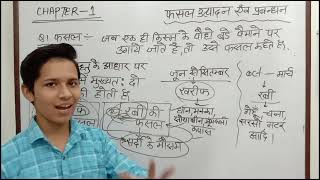 CHAPTER-1
फसल उत्पादन एवं प्रबन्धन
Q1 फसल:- जब एक ही किस्म के पौधों बड़े पैमाने पर
उगाये जाते है, तो उसे फसल कहते है।
के आधार पर
मुख्यतः दो
होती है
रबी की
फसल
सर्दी के मौसम
जून से सितम्बर
खरीफ
धान, मक्का,
सोयाबीन, मूंगफली
कपास
oct - मार्च
रबी
गेहूँ, चना,
सरसों, मटर
आदि।